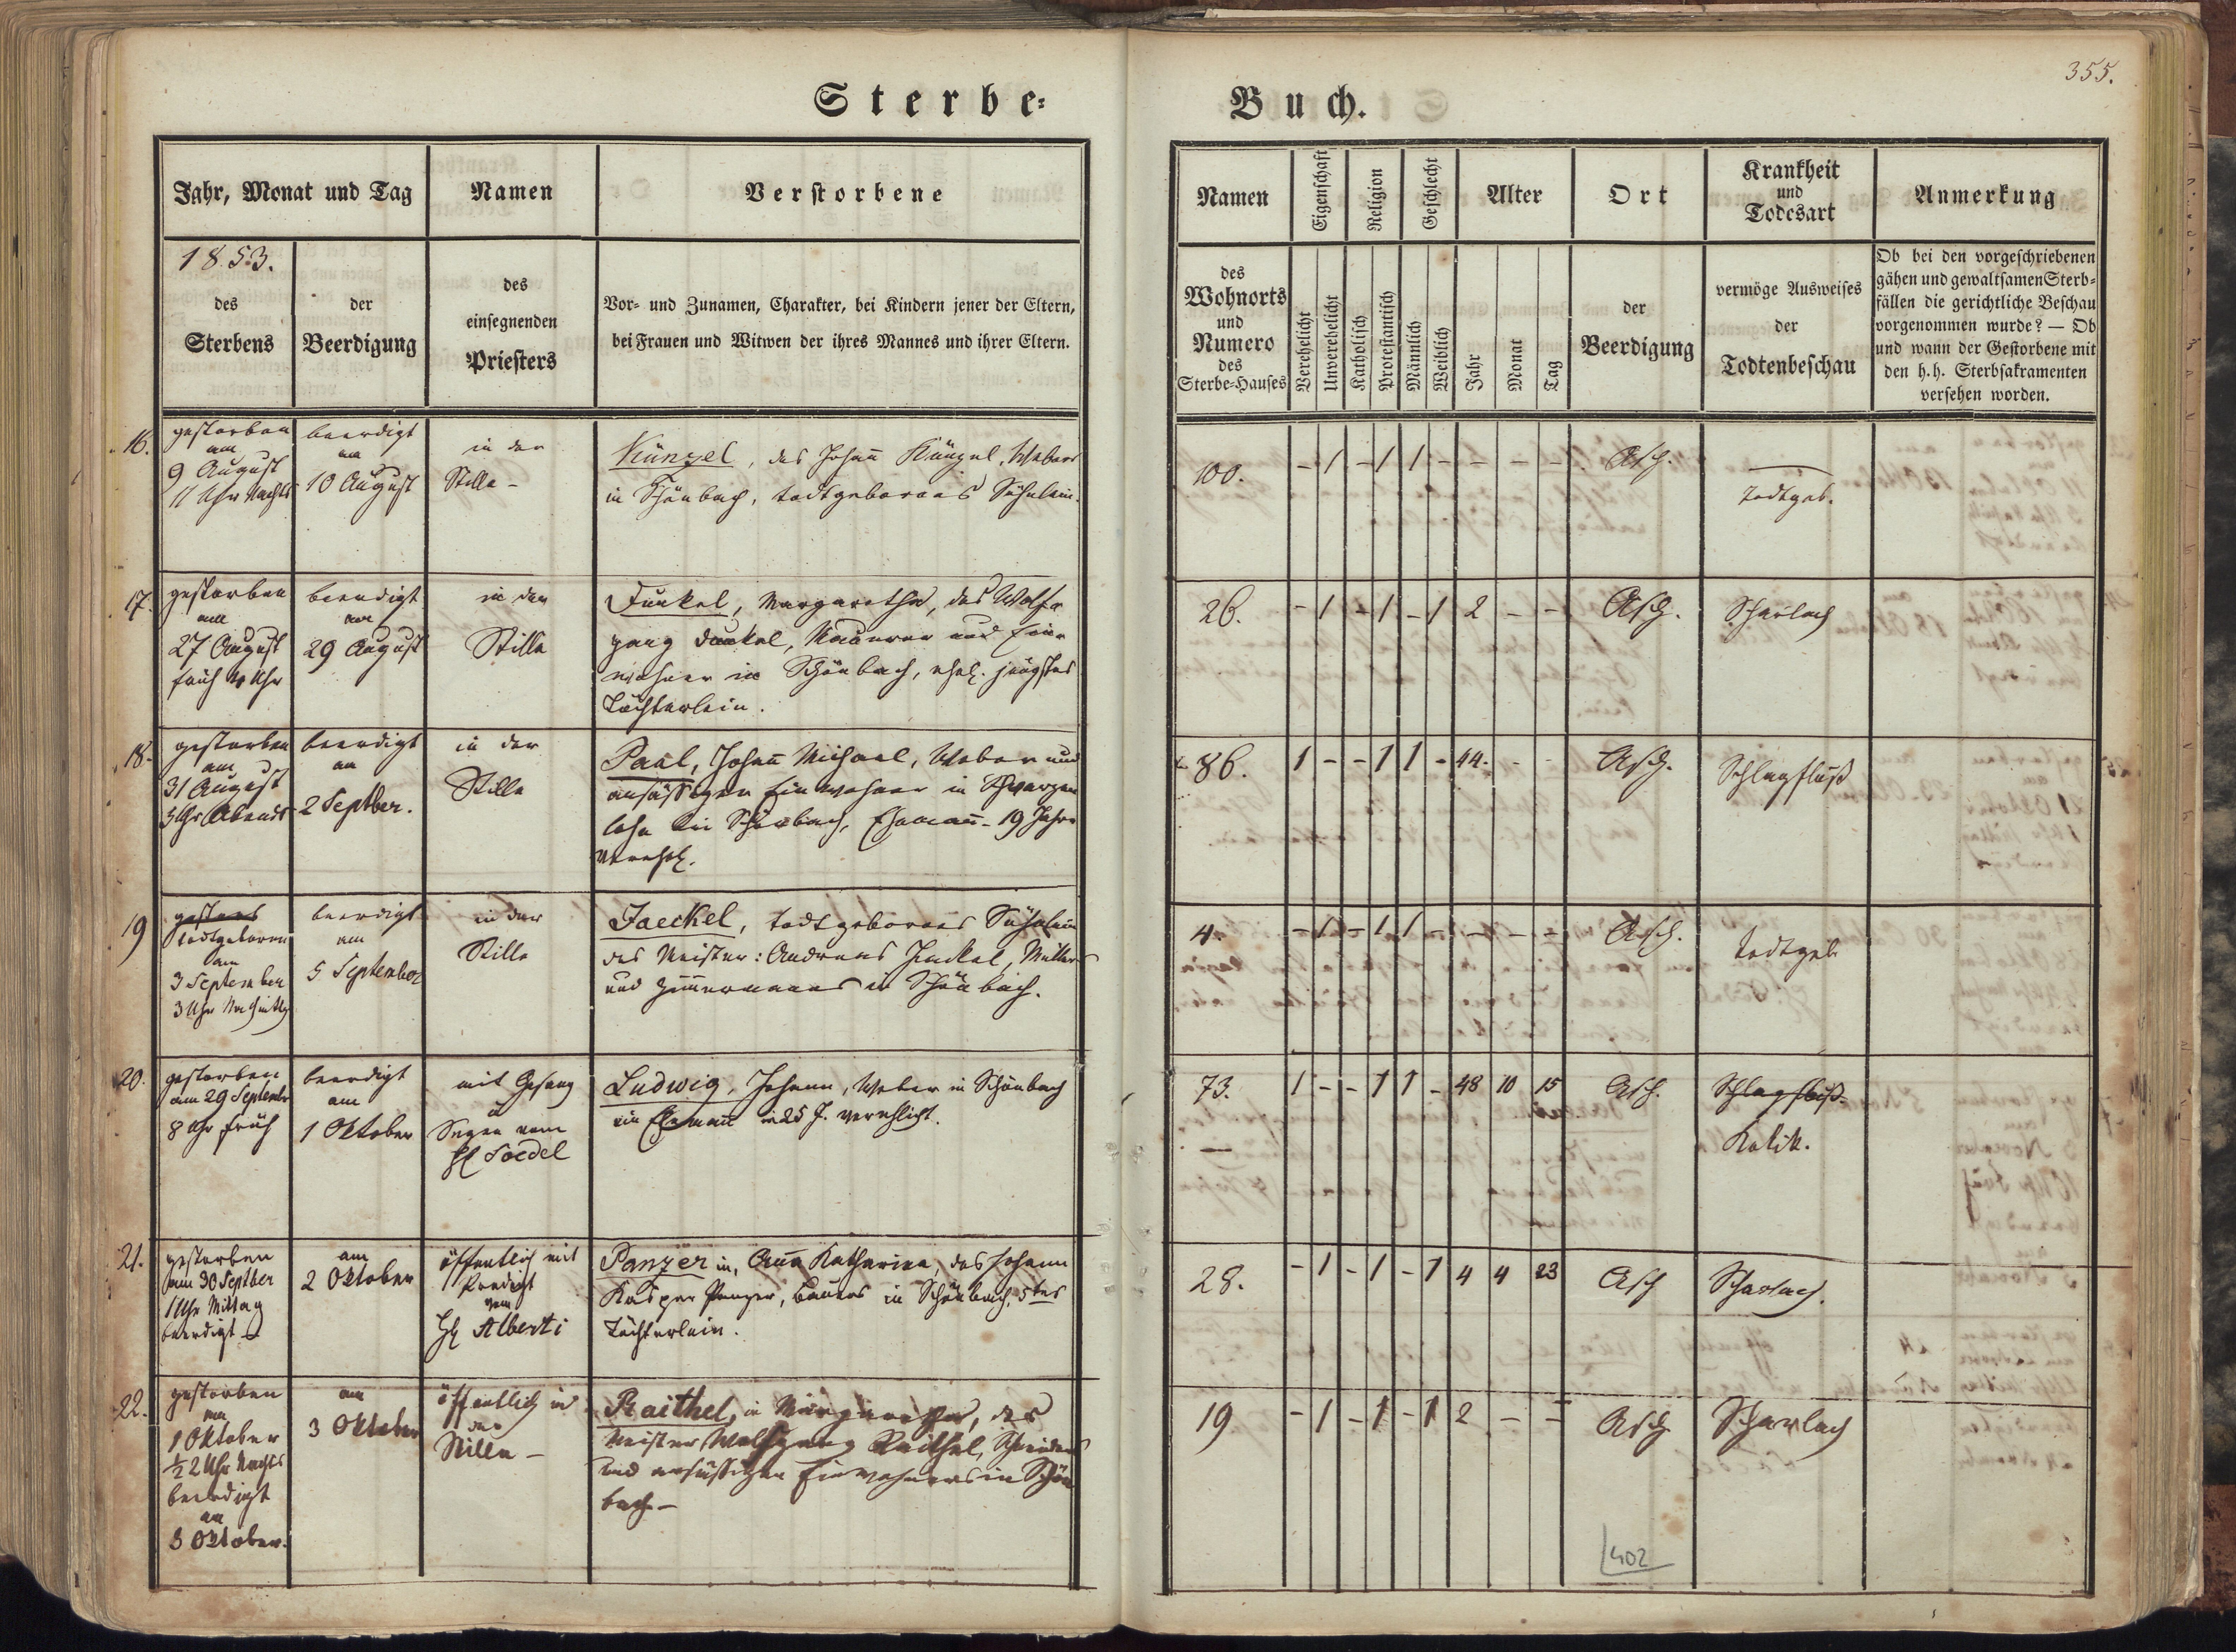 355.
Sterbe-
Buch.
Jahr, Monat und Tag
Namen
Verstorbene
1853.
des
Sterbens
der
Beerdigung
des
einsegnenden
Priesters
Vor- und Zunamen, Charakter, bei Kindern jener der Eltern,
bei Frauen und Witwen der ihres Mannes und ihrer Eltern.
Namen
Eigenschaft
Religion
Geschlecht
Alter
Ort
Krankheit
und
Todesart
Anmerkung
des
Wohnorts
und
Numero
des
Sterbe-Hauses
Verehelicht
Unverehelicht
Katholisch
Protestantisch
Männlich
Weiblich
Jahr
Monat
Tag
der
Beerdigung
vermöge Ausweises
der
Todtenbeschau
Ob bei den vorgeschriebenen
gähen und gewaltsamen Sterb-
fällen die gerichtliche Beschau
vorgenommen wurde? — Ob
und wann der Gestorbene mit
den h. h. Sterbsakramenten
versehen worden.
16.
gestorben
am
9 August
11 Uhr Nachts
beerdigt
am
10 August
in der
Stille -
Künzel, des Johañ Künzel, Webers
in Schönbach, todtgebornes Söhnlein.
100.
- 1 - 1 1 - - - -
Asch.
todtgeb.
17.
gestorben
am
27 August
früh 4 Uhr
beerdigt
am
29 August
in der
Stille
Dunkel, Margaretha, des Wolf-
gang Dunkel, Maurer und Ein-
wohner in Schönbach, ehel. jüngstes
Töchterlein.
26.
- 1 - 1 - 1 2 - -
Asch.
Scharlach
18.
gestorben
am
31 August
3 Uhr Abends
beerdigt
am
2 Septber.
in der
Stille
Paul, Johañ Michael, Weber und
ansässigen Einwohner in Schwarzen
lohe bei Schönbach, Ehemañ - 19 Jahre
verehel.
86.
1 - - 1 1 - 44. - -
Asch.
Schlagfluß
19
gestorb
todtgeboren
am
3 September
3 Uhr Nachmittg
beerdigt
am
5 September
in der
Stille
Jaeckel, todtgebornes Söhnlein
des Meister: Andreas Jaeckel, Müllers
und Zimmermanns in Schönbach.
4.
- 1 - 1 1 - - - -
Asch.
todtgeb
20.
gestorben
am 29 Septembr
8 Uhr früh
beerdigt
am
1 Oktober
mit Gesang
u
Segen vom
H Soedel
Ludwig, Johann, Weber in Schönbach
ein Ehemañ 25 J. verehlicht.
73.
1 - - 1 1 - 48 10 15
Asch.
Schlagfluß
Kolik.
21.
gestorben
am 30 Septber
1 Uhr Mittag
beerdigt
am
2 Oktober
öffentlich mit
Predigt
vom
H Alberti
Panzer in, Aña Katharina, des Johann
Kasper Panzer, Bauers in Schönbach, 5tes
Töchterlein.
28.
- 1 - 1 - 1 4 4 23
Asch
Scharlach.
22.
gestorben
am
1 Oktober
½ 2 Uhr Nachts
beerdigt
am
3 Oktober.
am
3 Oktober
öffentlich in
der
Stille -
Raithel, in Margaretha, des
Meister Wolfgang Raithel, Schneiders
und ansässigen Einwohners in Schön
bach -
19
- 1 - 1 - 1 2 - -
Asch
Scharlach
402